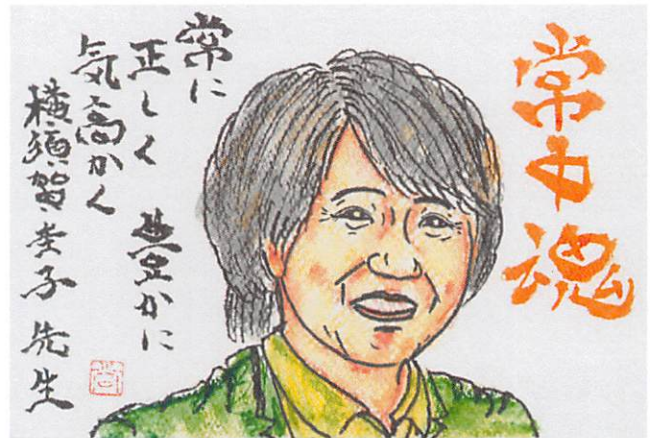 常中魂
常に
正しく 豊かに
気高かく
横須賀 孝子 先生
尚